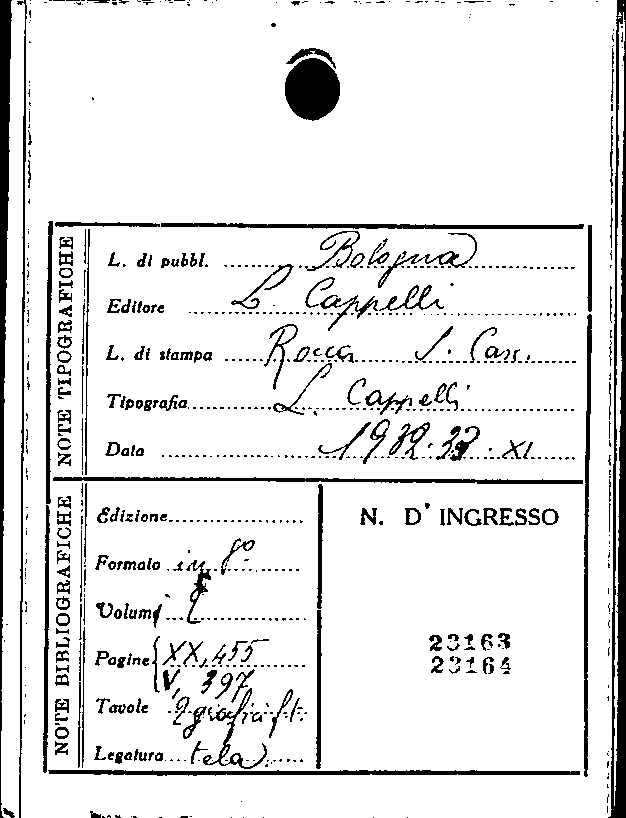 NOTE TIPOGRAFICHE
L. di pubbl. Bologna
Editore L. Cappelli
L. di stampa Rocca S. Casc.
Tipografia L. Cappelli
Data 1932-33 - XI
NOTE BIBLIOGRAFICHE
Edizione
Formato in 8º
Volumi
Pagine XX, 455
V, 397
Tavole 2 grafici f.t.
Legatura tela
N. D' INGRESSO
23163
23164